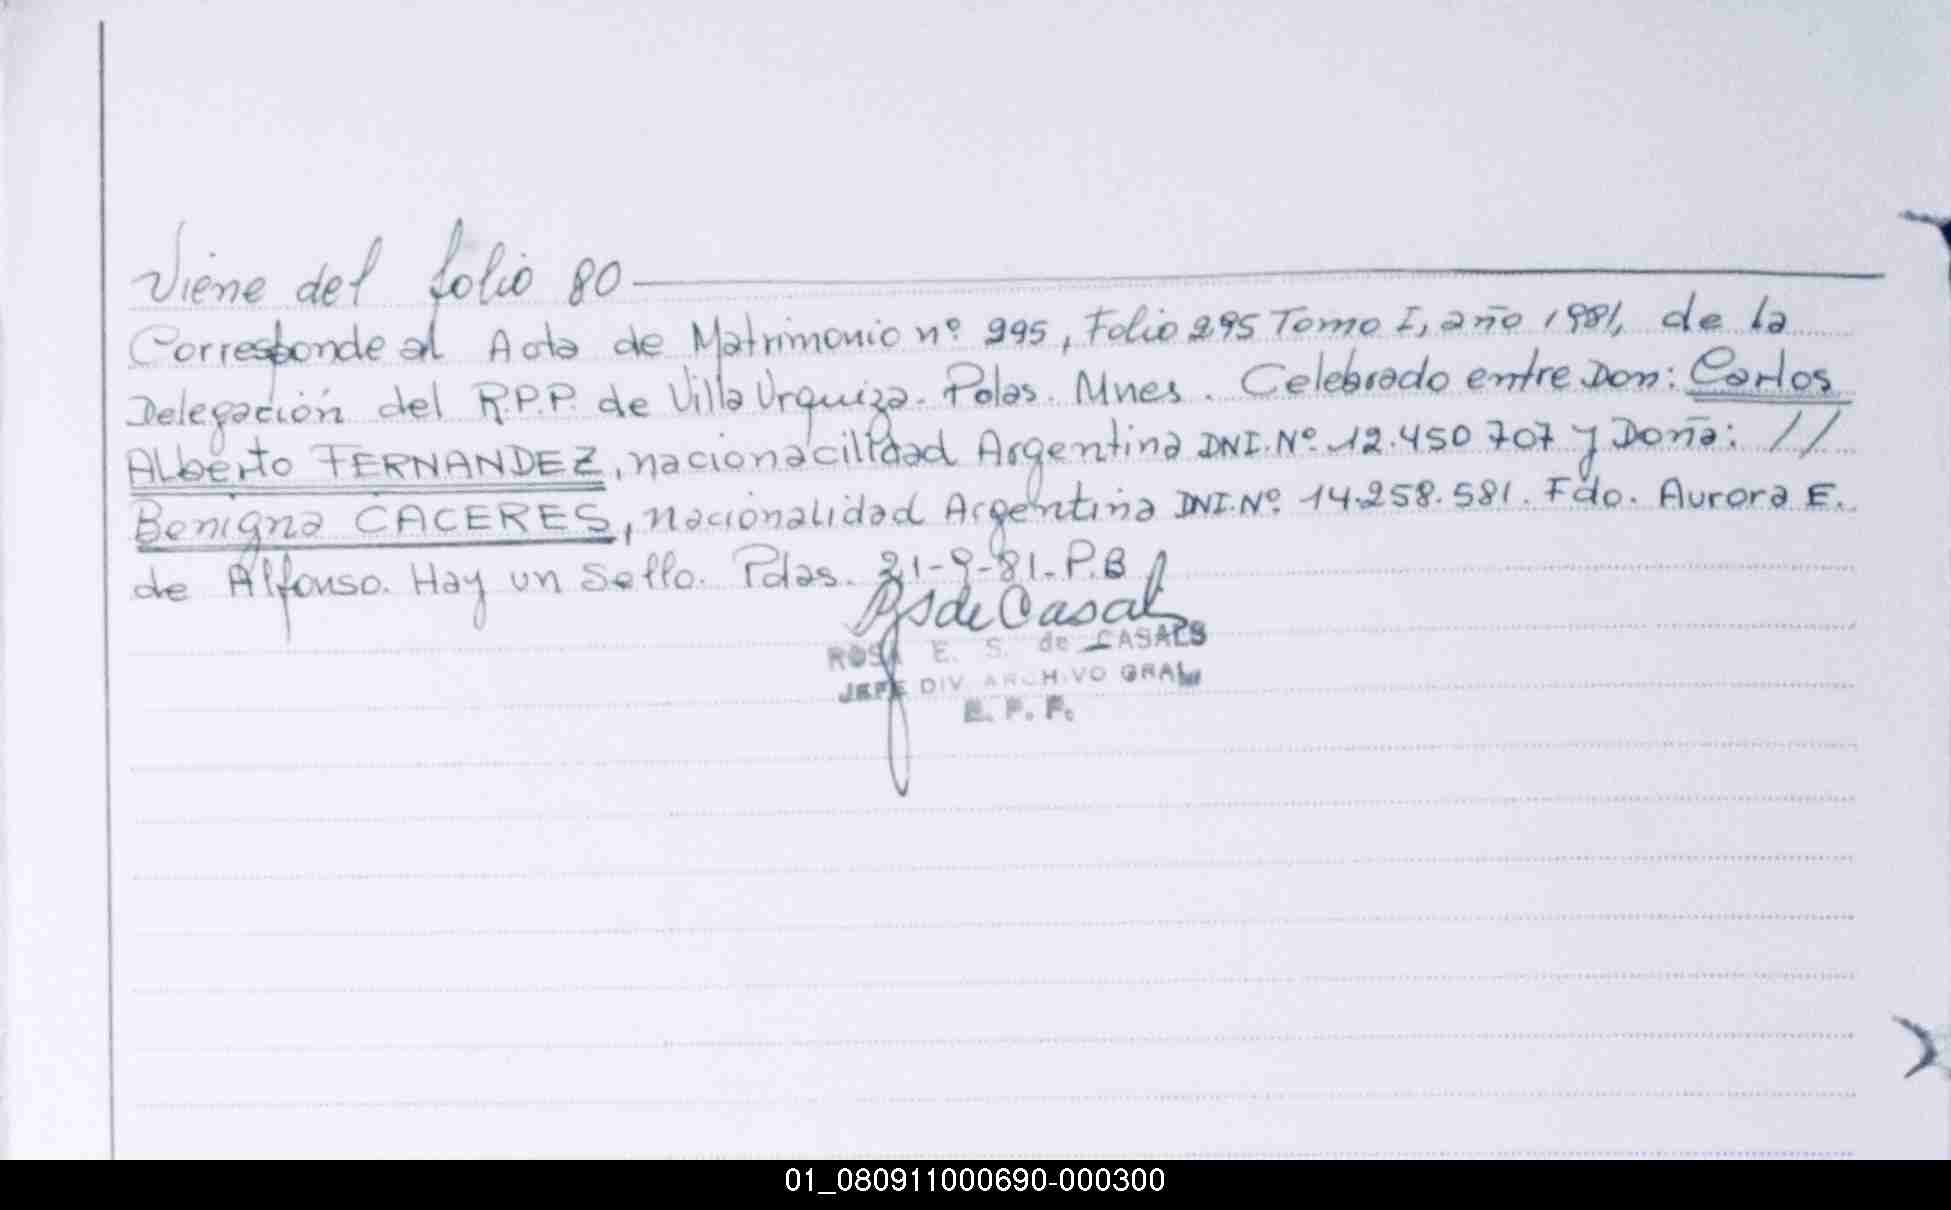 Viene del folio 80
Corresponde al Acta de Matrimonio nº 295, Folio 295 Tomo I, año 1981, de la
Delegación del R.P.P. de Villa Urquiza. Pdas. Mnes. Celebrado entre Don: Carlos
Alberto FERNANDEZ, nacionacilidad Argentina DNI. Nº 12.450 707 y Doña: //
Benigna CACERES, nacionalidad Argentina DNI. Nº 14.258.581. Fdo. Aurora E.
de Alfonso. Hay un Sello. Pdas. 21-9-81. P.B
ROSA E. S. de CASALS
JEFE DIV. ARCHIVO GRAL
01_080911000690-000300